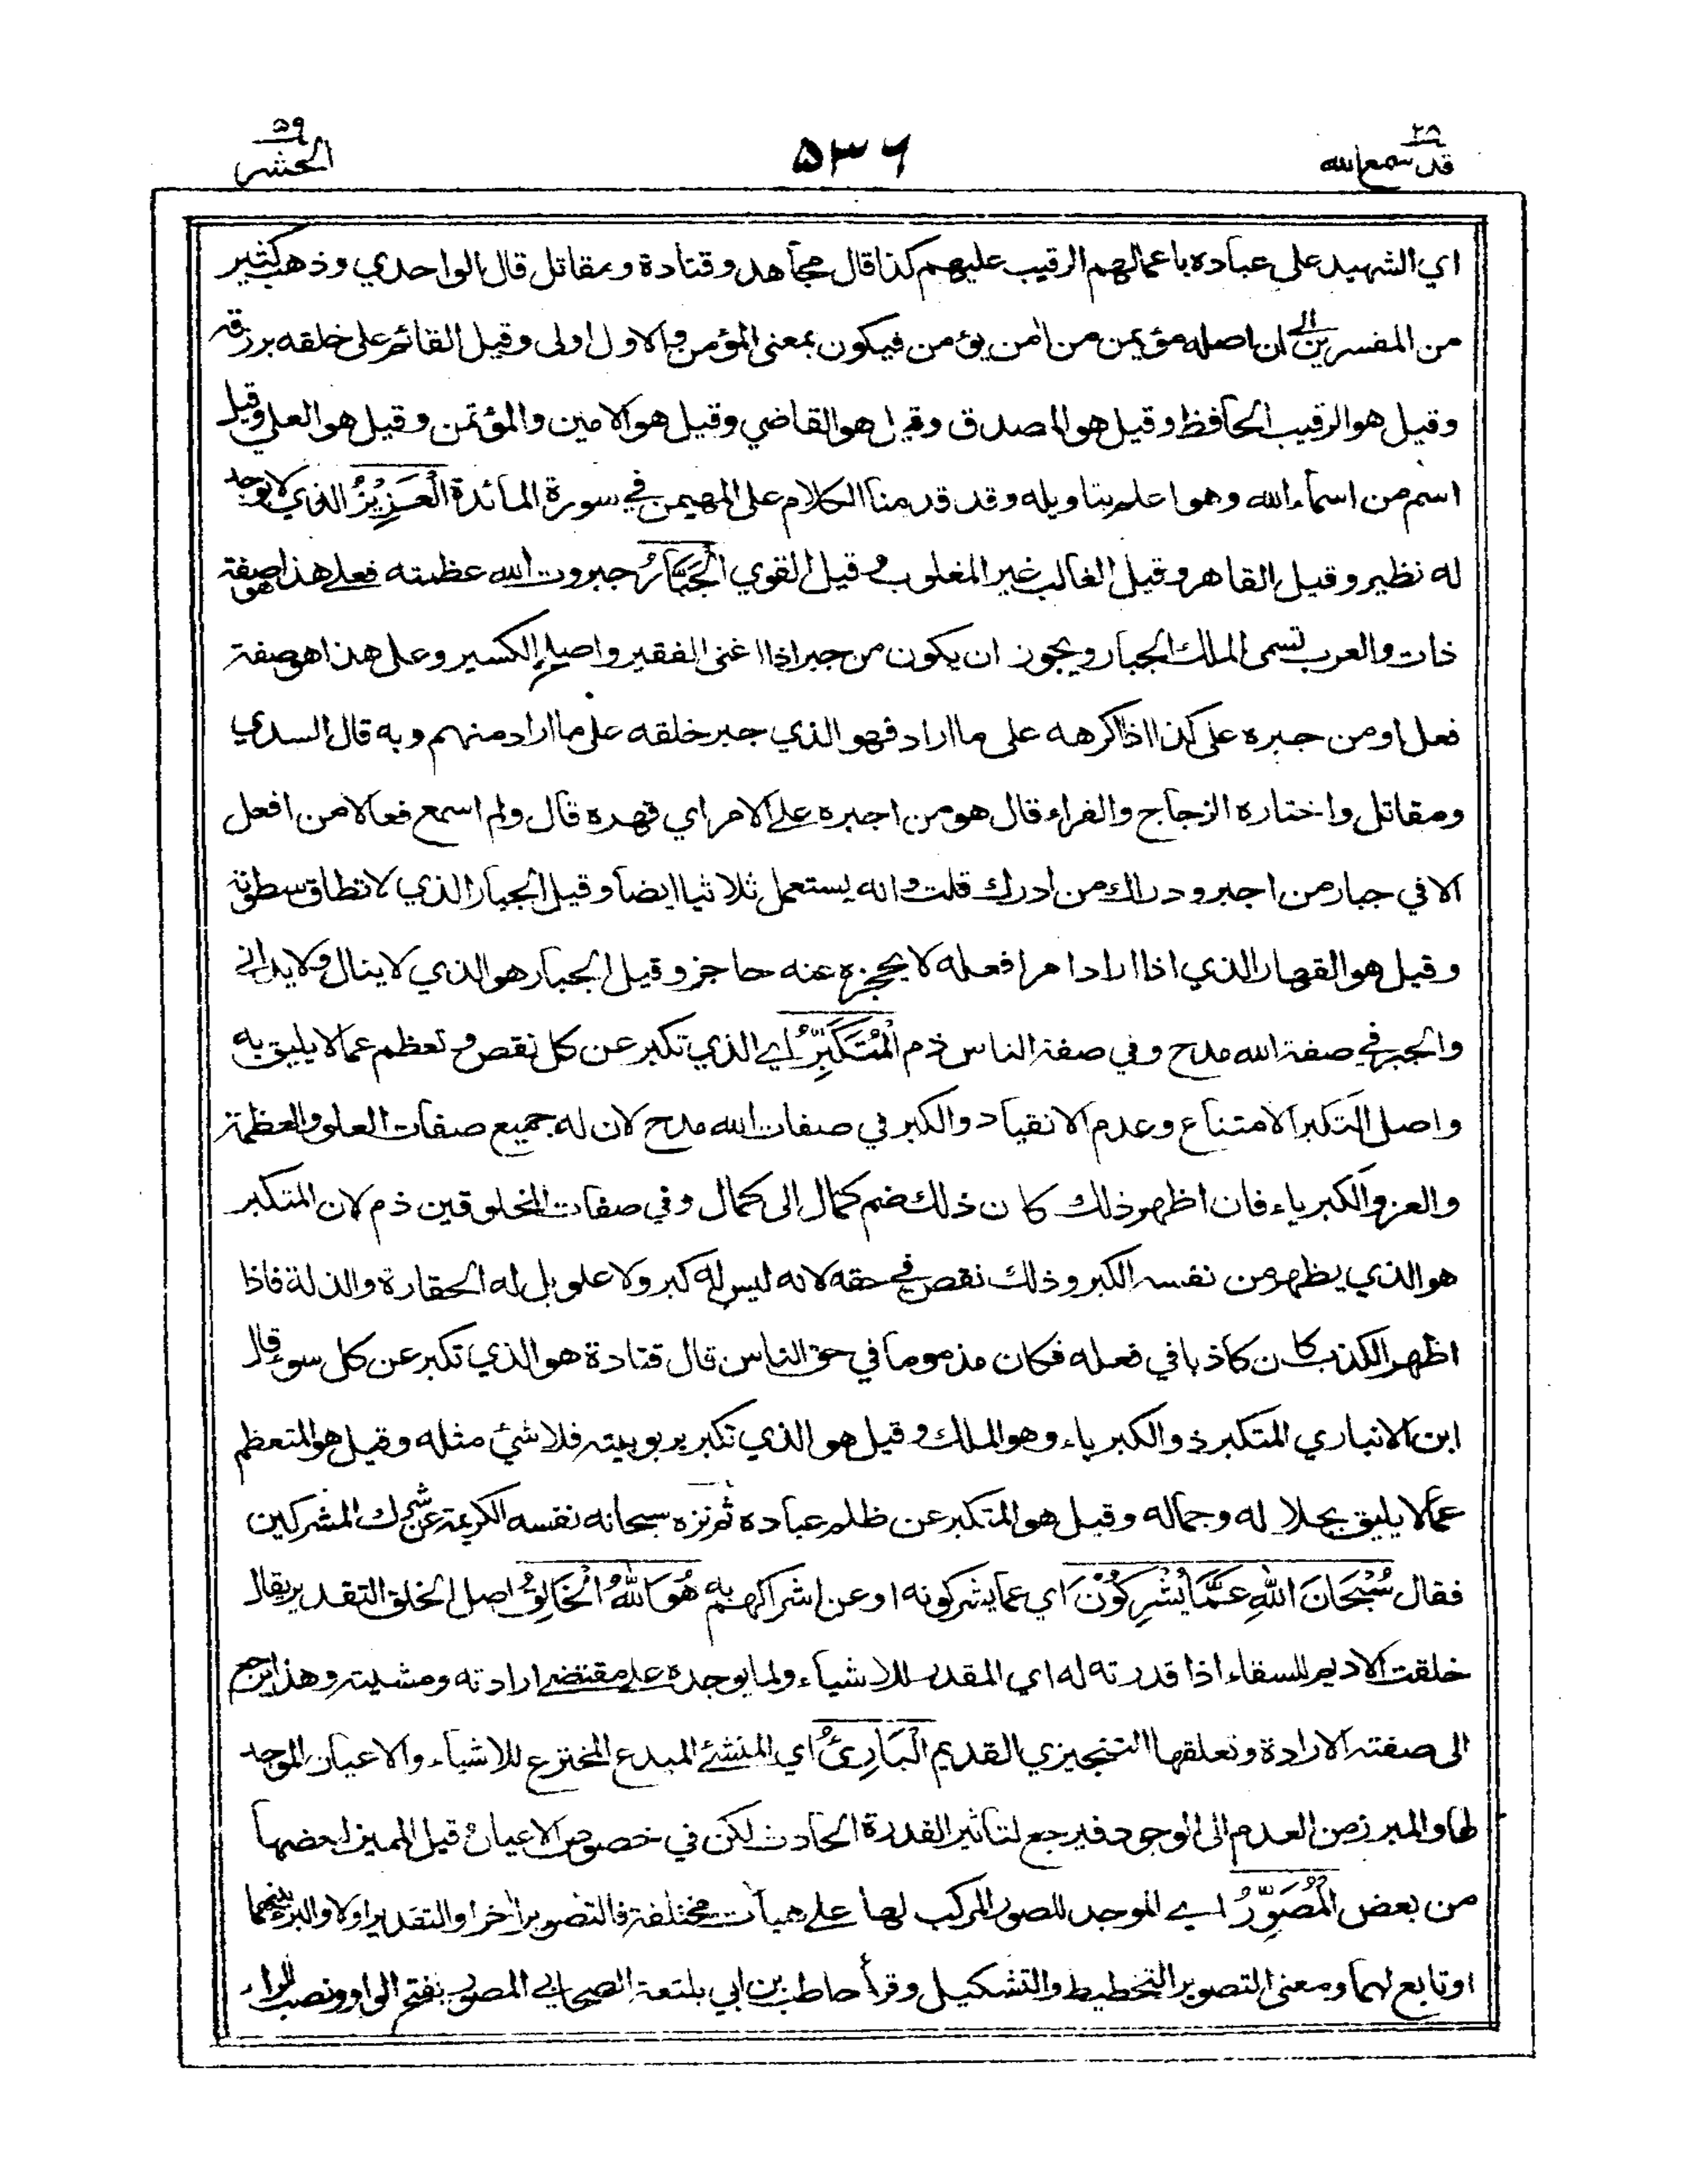 ٢٨
قد سمع الله
٥٣٦
٥٩
الحشر
اي الشهيد على عباده باعمالهم الرقيب عليهم كذا قال مجاهد وقتادة ومقاتل قال الواحدي وذهب كثير
من المفسرين الى ان اصله مؤيمن من امن يؤمن فيكون بمعنى المؤمن والاول اولى وقيل القائم على خلقه برزقه
وقيل هو الرقيب الحافظ وقيل هو المصدق وقيل هو القاضي وقيل هو الامين والمؤتمن وقيل هو العلي وقيل
اسم من اسماء الله وهو اعلم بتاويله وقد قدمنا الكلام على المهيمن في سورة المائدة الْعَزِيْزُ الذي لا يوجد
له نظير وقيل القاهر وقيل الغالب غير المغلوب وقيل القوي الْجَبَّارُ جبروت الله عظمته فعلى هذا هو صفة
ذات والعرب تسمى الملك الجبار ويجوز ان يكون من جبر اذا اغنى الفقير واصلح الكسير وعلى هذا هو صفة
فعل او من جبره على كذا اذا اكرهه على ما اراد فهو الذي جبر خلقه على ما اراد منهم وبه قال السدي
ومقاتل واختاره الزجاج والفراء قال هو من اجبره على الامر اي قهره قال ولم اسمع فعالا من افعل
الا في جبار من اجبر ودراك من ادرك قلت وانه يستعمل ثلاثيا ايضا وقيل الجبار الذي لا تطاق سطوته
وقيل هو القهار الذي اذا اراد امرا فعله لا يحجزه عنه حاجز وقيل الجبار هو الذي لا ينال ولا يدانى
والجبر في صفة الله مدح وفي صفة الناس ذم الْمُتَكَبِّرُ اي الذي تكبر عن كل نقص وتعظم عما لا يليق به
واصل التكبر الامتناع وعدم الانقياد والكبر في صفات الله مدح لان له جميع صفات العلو والعظمة
والعز والكبرياء فان اظهر ذلك كان ذلك ضم كمال الى كمال وفي صفات المخلوقين ذم لان المتكبر
هو الذي يظهر من نفسه الكبر وذلك نقص في حقه لانه ليس له كبر ولا علو بل له الحقارة والذلة فاذا
اظهر الكذب كان كاذبا في فعله فكان مذموما في حق الناس قال قتادة هو الذي تكبر عن كل سوء قال
ابن الانباري المتكبر ذو الكبرياء وهو الملك وقيل هو الذي تكبر بربوبيته فلا شئ مثله وقيل هو المتعظم
عما لا يليق بجلاله وجماله وقيل هو المتكبر عن ظلم عباده ثم نزه سبحانه نفسه الكريمة عن شرك المشركين
فقال سُبْحَانَ اللهِ عَمَّا يُشْرِكُوْنَ اي عما يشركونه او عن اشراكهم به هُوَ اللهُ الْخَالِقُ اصل الخلق التقدير يقال
خلقت الاديم للسقاء اذا قدرته له اي المقدر للاشياء ولما يوجده على مقتضى ارادته ومشيته وهذا يرجع
الى صفته الارادة وتعلقها التنجيزي القديم الْبَارِئُ اي المنشئ المبدع المخترع للاشياء والاعيان الموجد
لها والمبرز من العدم الى الوجود فيرجع لتاثير القدرة الحادث لكن في خصوص الاعيان وقيل المميز لبعضها
من بعض الْمُصَوِّرُ اي الموجد للصور المركب لها على هيأت مختلفة فالتصوير اخرا والتقدير اولا والبرء بينهما
او تابع لهما ومعنى التصوير التخطيط والتشكيل وقرأ حاطب بن ابي بلتعة الصحابي المصور بفتح الواو ونصب الراء